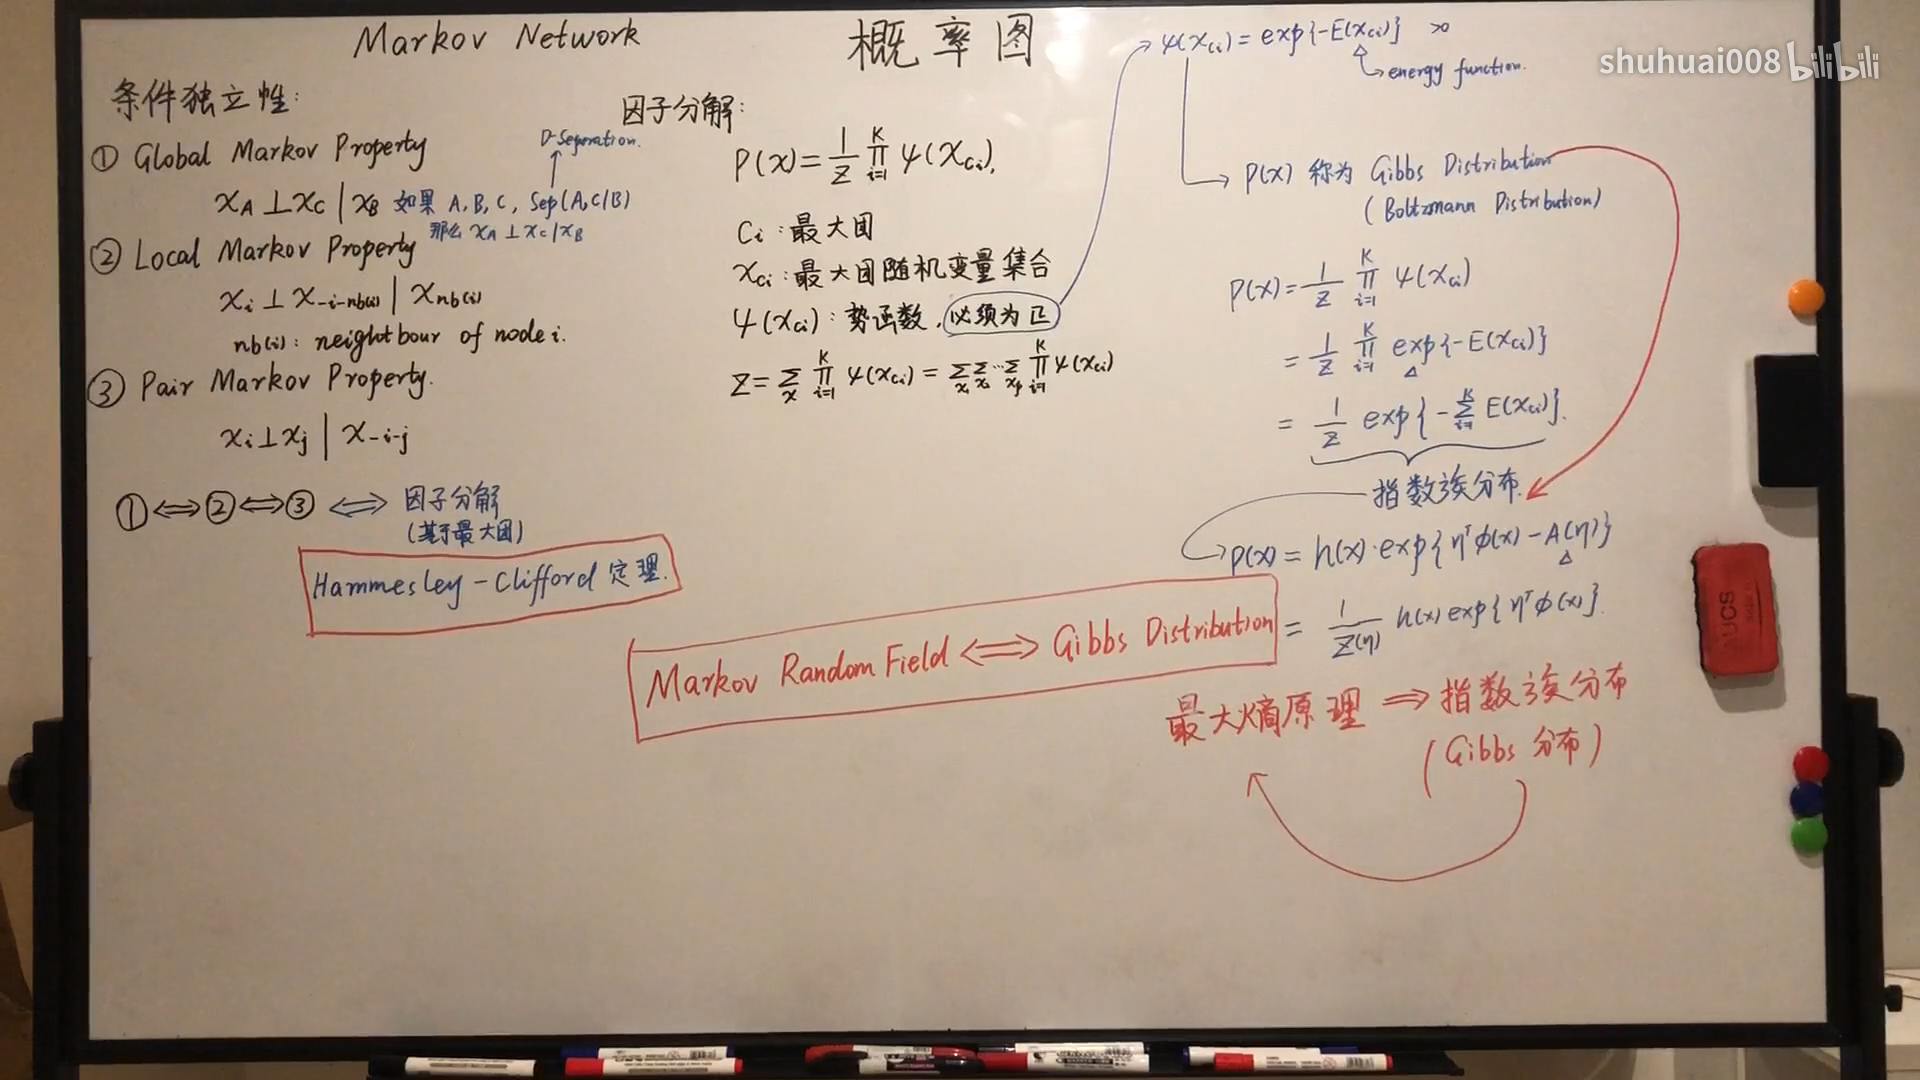 Markov Network 概率图
shuhuai008 bilibili
条件独立性:
① Global Markov Property
D-Seperation.
x_A ⊥ x_C | x_B 如果 A, B, C, Sep(A,C|B)
那么 x_A ⊥ x_C | x_B
② Local Markov Property
x_i ⊥ x_{-i-nb(i)} | x_{nb(i)}
nb(i): neightbour of node i.
③ Pair Markov Property.
x_i ⊥ x_j | x_{-i-j}
① ⟺ ② ⟺ ③ ⟺ 因子分解
(基于最大团)
Hammesley-Clifford 定理.
因子分解:
P(x) = 1/Z ∏_{i=1}^{K} ψ(x_{Ci}),
Ci: 最大团
x_{Ci}: 最大团随机变量集合
ψ(x_{Ci}): 势函数, 必须为正
Z = ∑_x ∏_{i=1}^{K} ψ(x_{Ci}) = ∑_{x1} ∑_{x2} ⋯ ∑_{xp} ∏_{i=1}^{K} ψ(x_{Ci})
ψ(x_{Ci}) = exp{-E(x_{Ci})} >0
energy function.
P(x) 称为 Gibbs Distribution
(Boltzmann Distribution)
P(x) = 1/Z ∏_{i=1}^{K} ψ(x_{Ci})
= 1/Z ∏_{i=1}^{K} exp{-E(x_{Ci})}
= 1/Z exp{-∑_{i=1}^{K} E(x_{Ci})}.
指数族分布.
P(x) = h(x)·exp{η^T φ(x) - A(η)}
= 1/Z(η) h(x) exp{η^T φ(x)}.
Markov Random Field ⟺ Gibbs Distribution
最大熵原理 ⟹ 指数族分布
(Gibbs 分布)
AUCS